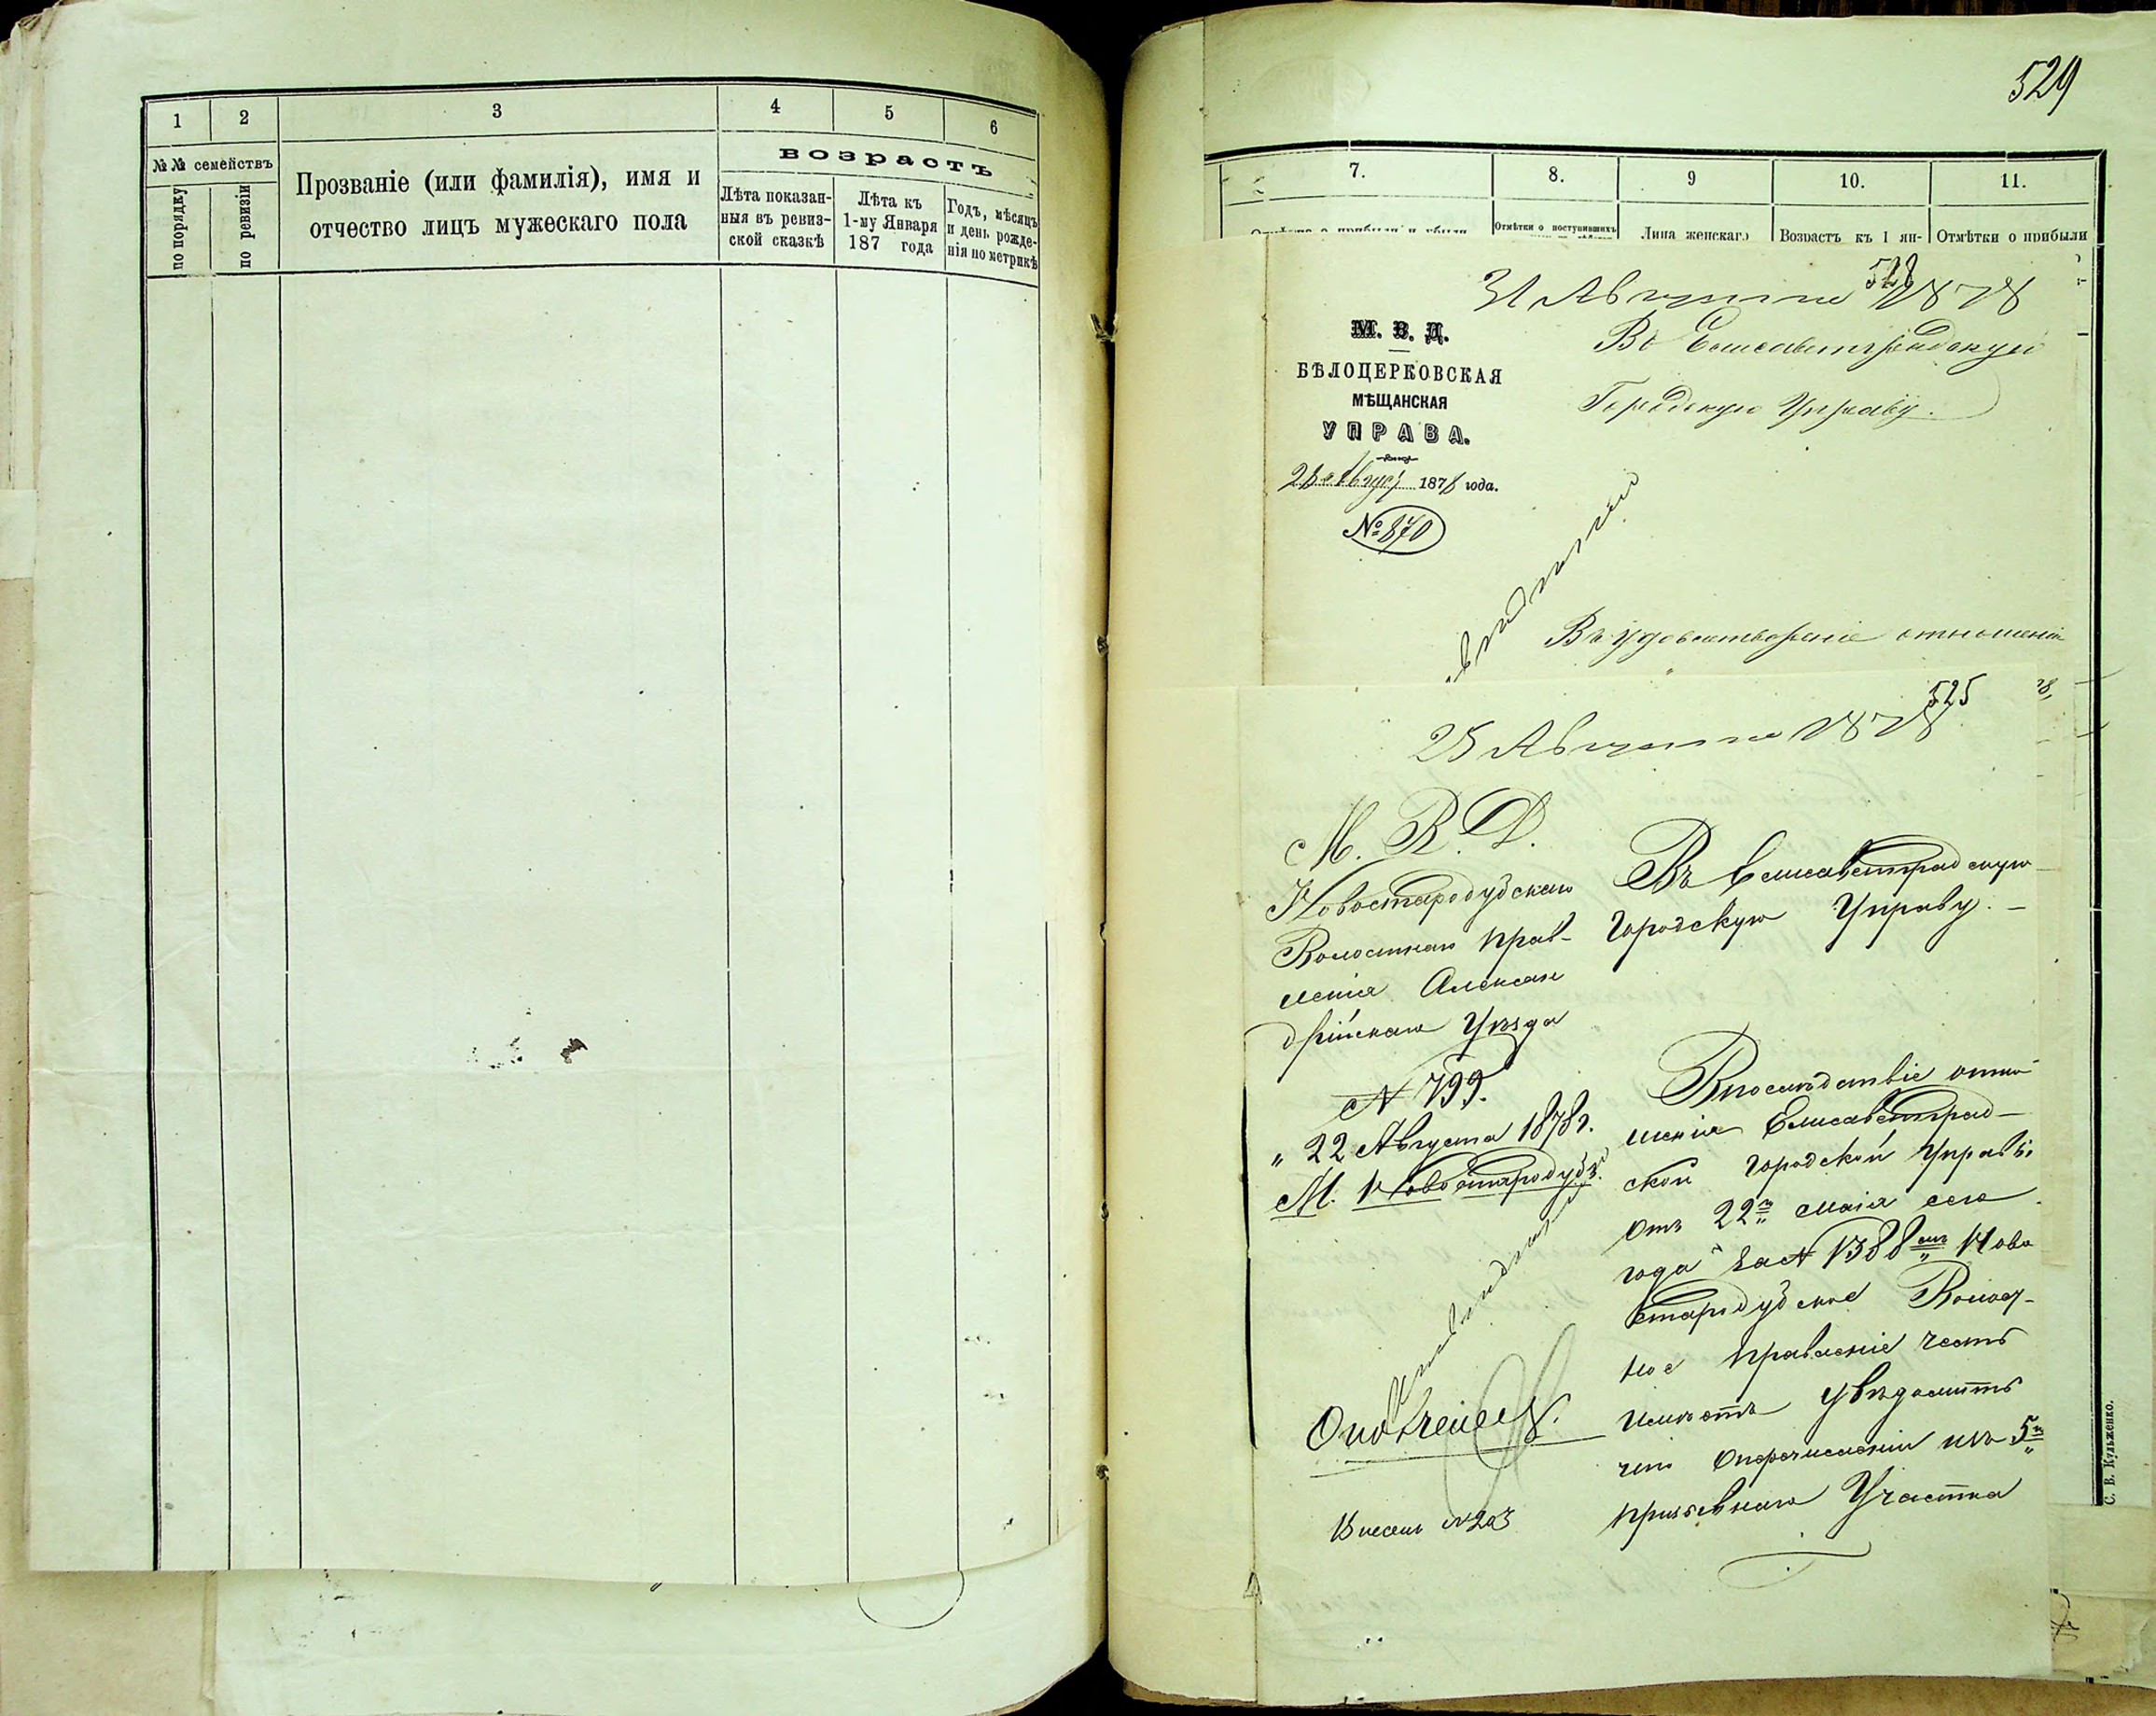 1
2
3
4
5
6
№№ семействъ
по порядку
по ревизіи
Прозваніе (или фамилія), имя и
отчество лицъ мужескаго пола
возрастъ
Лѣта показан-
ныя въ ревиз-
ской сказкѣ
Лѣта къ
1-му Января
187 года
Годъ, мѣсяцъ
и день рожде-
нія по метрикѣ
529
7.
8.
9
10.
11.
Отмѣтки о поступившихъ
Лица женскаго
Возрастъ къ 1 ян-
Отмѣтки о прибыли
528
31 Августа 1878
М. В. Д.
БѢЛОЦЕРКОВСКАЯ
МѢЩАНСКАЯ
УПРАВА.
28 Авгус 1878 года.
№ 870
Въ Елисаветградскую
Городскую Управу.
Въ удовлетвореніе отношенія
525
25 Августа 1878
М. В. Д.
Новостародубскаго
Волостнаго Прав-
ленія Алексан
дрійскаго Уѣзда
N 799.
„ 22 Августа 1878 г.
М. Новостародубъ.
Въ Елисаветградскую
Городскую Управу. —
Впослѣдствіе отно-
шенія Елисаветград-
ской Городской Управы
отъ 22го Маія сего
года за N 1388мъ Ново
стародубское Волост-
ное Правленіе честь
имѣетъ увѣдомить
что Оперечисленіи изъ 5го
призывнаго Участка
Внесен N 203
С. В. Кульженко.